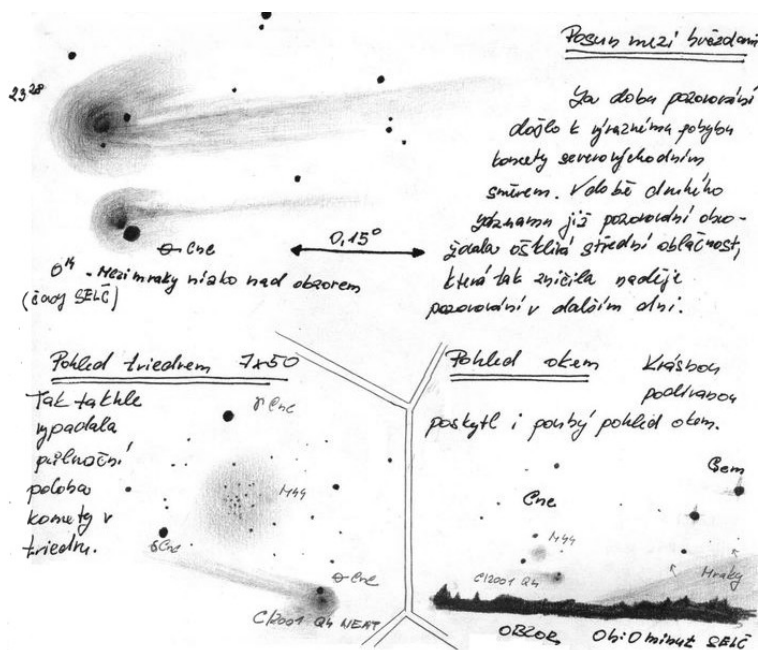 Posun mezi hvězdami
23 28
Za dobu pozorování
došlo k výraznému pohybu
komety severovýchodním
směrem. V době druhého
záznamu již pozorování ohro-
žovala ošklivá střední oblačnost,
která tak zničila naděje
pozorování v dalším dni.
θ Cnc
0,15°
0h - Mezi mraky nízko nad obzorem
(časy SELČ)
Pohled triedrem 7x50
Tak takhle
vypadala
půlnoční
poloha
komety v
triedru.
γ Cnc
M44
δ Cnc
θ Cnc
C/2001 Q4 NEAT
Pohled okem
Krásnou
podívanou
poskytl i pouhý pohled okem.
Gem
Cnc
M44
C/2001 Q4
Mraky
OBZOR 0h:0 minut SELČ